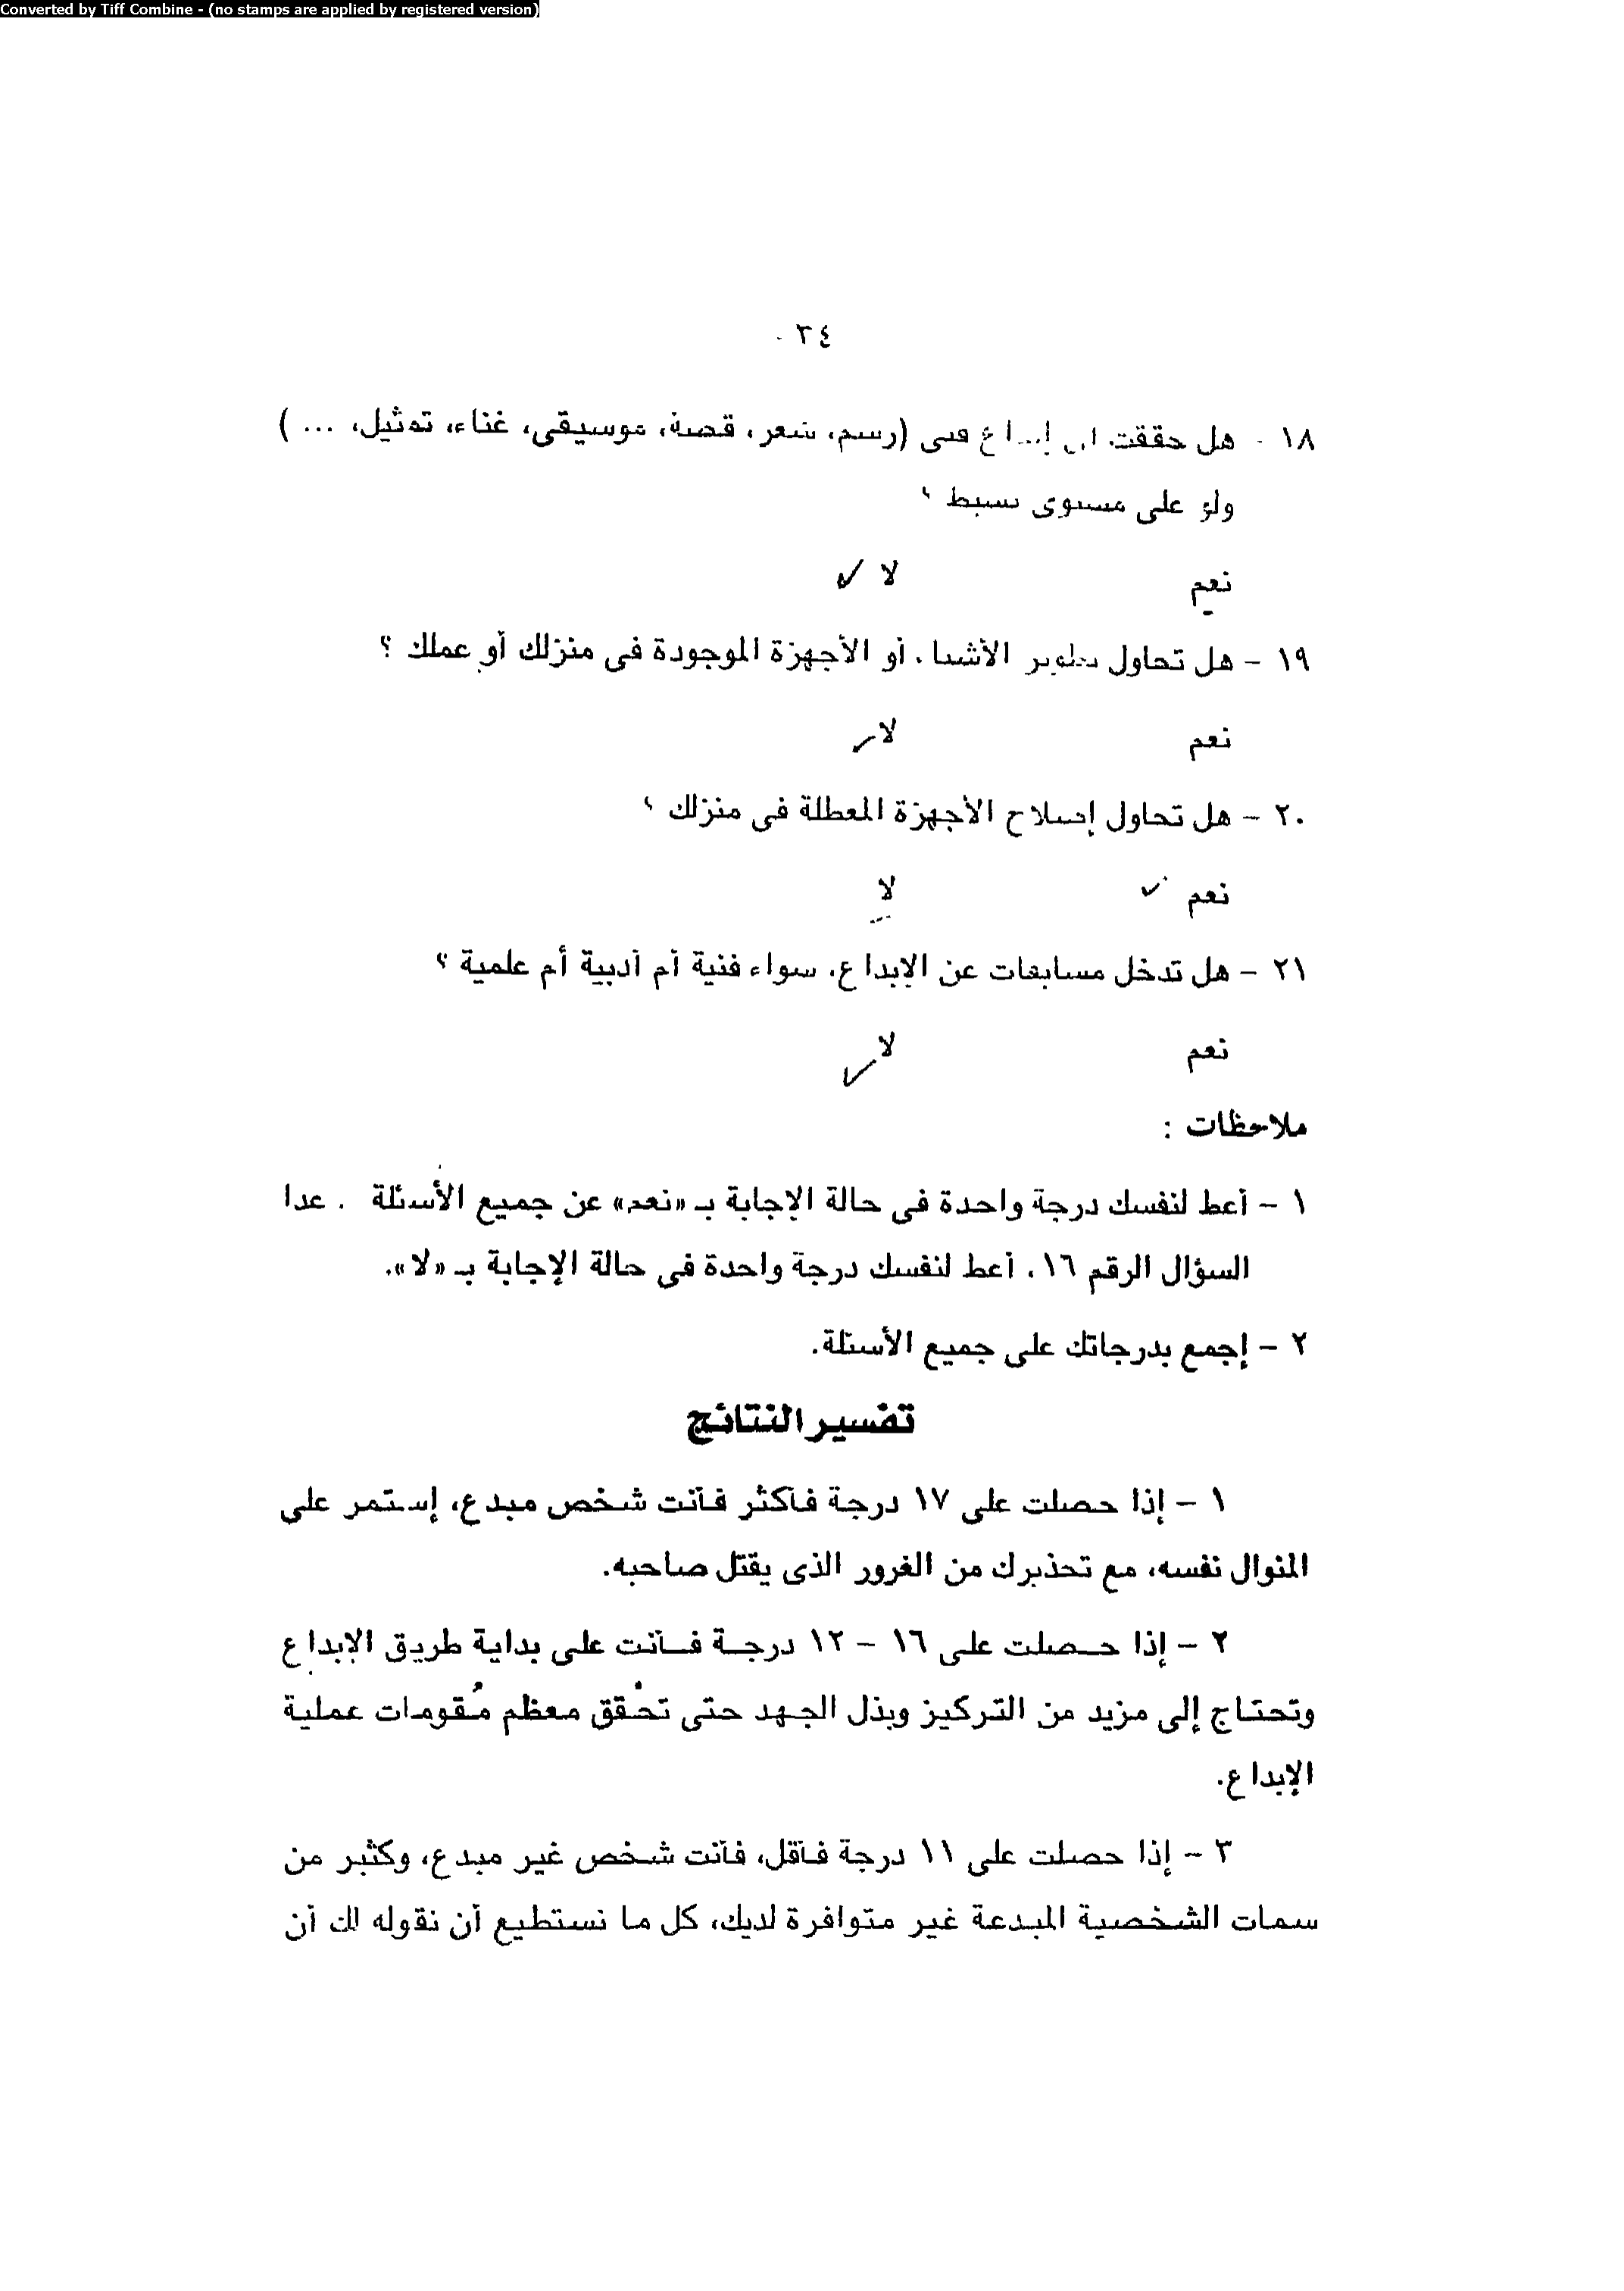 Converted by Tiff Combine - (no stamps are applied by registered version)
٣٤
١٨ - هل حققت أى إبداع فى (رسم، شعر، قصة، موسيقى، غناء، تمثيل، ... )
ولو على مستوى بسيط ؟
نعم لا ✓
١٩ - هل تحاول تطوير الأشياء، أو الأجهزة الموجودة فى منزلك أو عملك ؟
نعم لا ✓
٢٠ - هل تحاول إصلاح الأجهزة المعطلة فى منزلك ؟
نعم ✓ لا
٢١ - هل تدخل مسابقات عن الإبداع، سواء فنية أم أدبية أم علمية ؟
نعم لا ✓
ملاحظات :
١ - أعط لنفسك درجة واحدة فى حالة الإجابة بـ «نعم» عن جميع الأسئلة . عدا
السؤال الرقم ١٦، أعط لنفسك درجة واحدة فى حالة الإجابة بـ «لا».
٢ - إجمع بدرجاتك على جميع الأسئلة.
تفسير النتائج
١ - إذا حصلت على ١٧ درجة فأكثر فأنت شخص مبدع، إستمر على
المنوال نفسه، مع تحذيرك من الغرور الذى يقتل صاحبه.
٢ - إذا حصلت على ١٦ - ١٢ درجة فأنت على بداية طريق الإبداع
وتحتاج إلى مزيد من التركيز وبذل الجهد حتى تحُقق معظم مُقومات عملية
الإبداع.
٣ - إذا حصلت على ١١ درجة فأقل، فأنت شخص غير مبدع، وكثير من
سمات الشخصية المبدعة غير متوافرة لديك، كل ما نستطيع أن نقوله لك أن